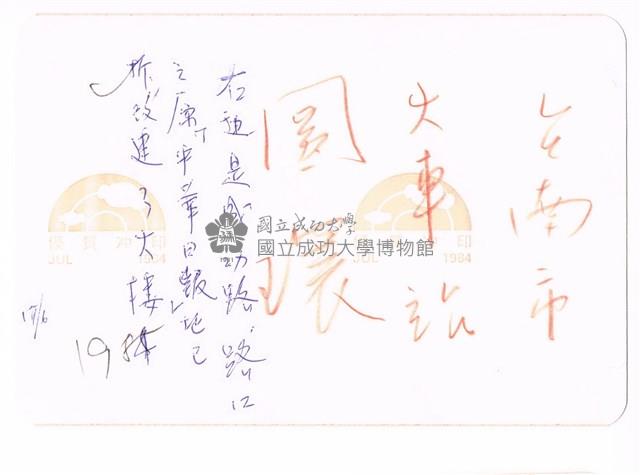 台南市
火車站
圓環
右迎是成功路．路口
之原「中華日報」地已
拆改建了大樓
19
優質沖印
JUL 1984
優質沖印
JUL 1984
國立成功大學
國立成功大學博物館
1931